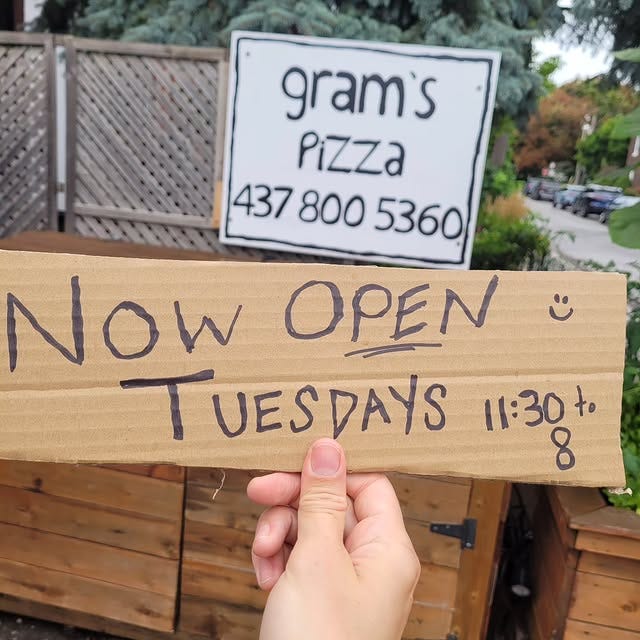 gram's
PiZZa
437 800 5360
Now OPEN
TUESDAYS 11:30 to
8